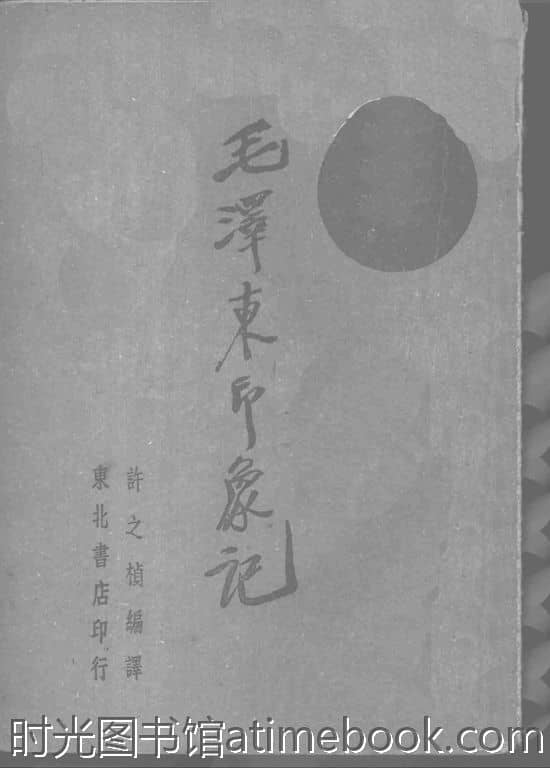 毛澤東印象記
許之楨編譯
東北書店印行
时光图书馆atimebook.com